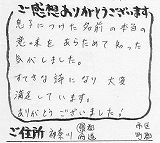 ご感想ありがとうございます
息子につけた名前の本当の
意味をあらためて知った
気がしました。
すてきな詩になり大変
満足しています。
ありがとうございました!
ご住所 神奈川 都道府県 市区